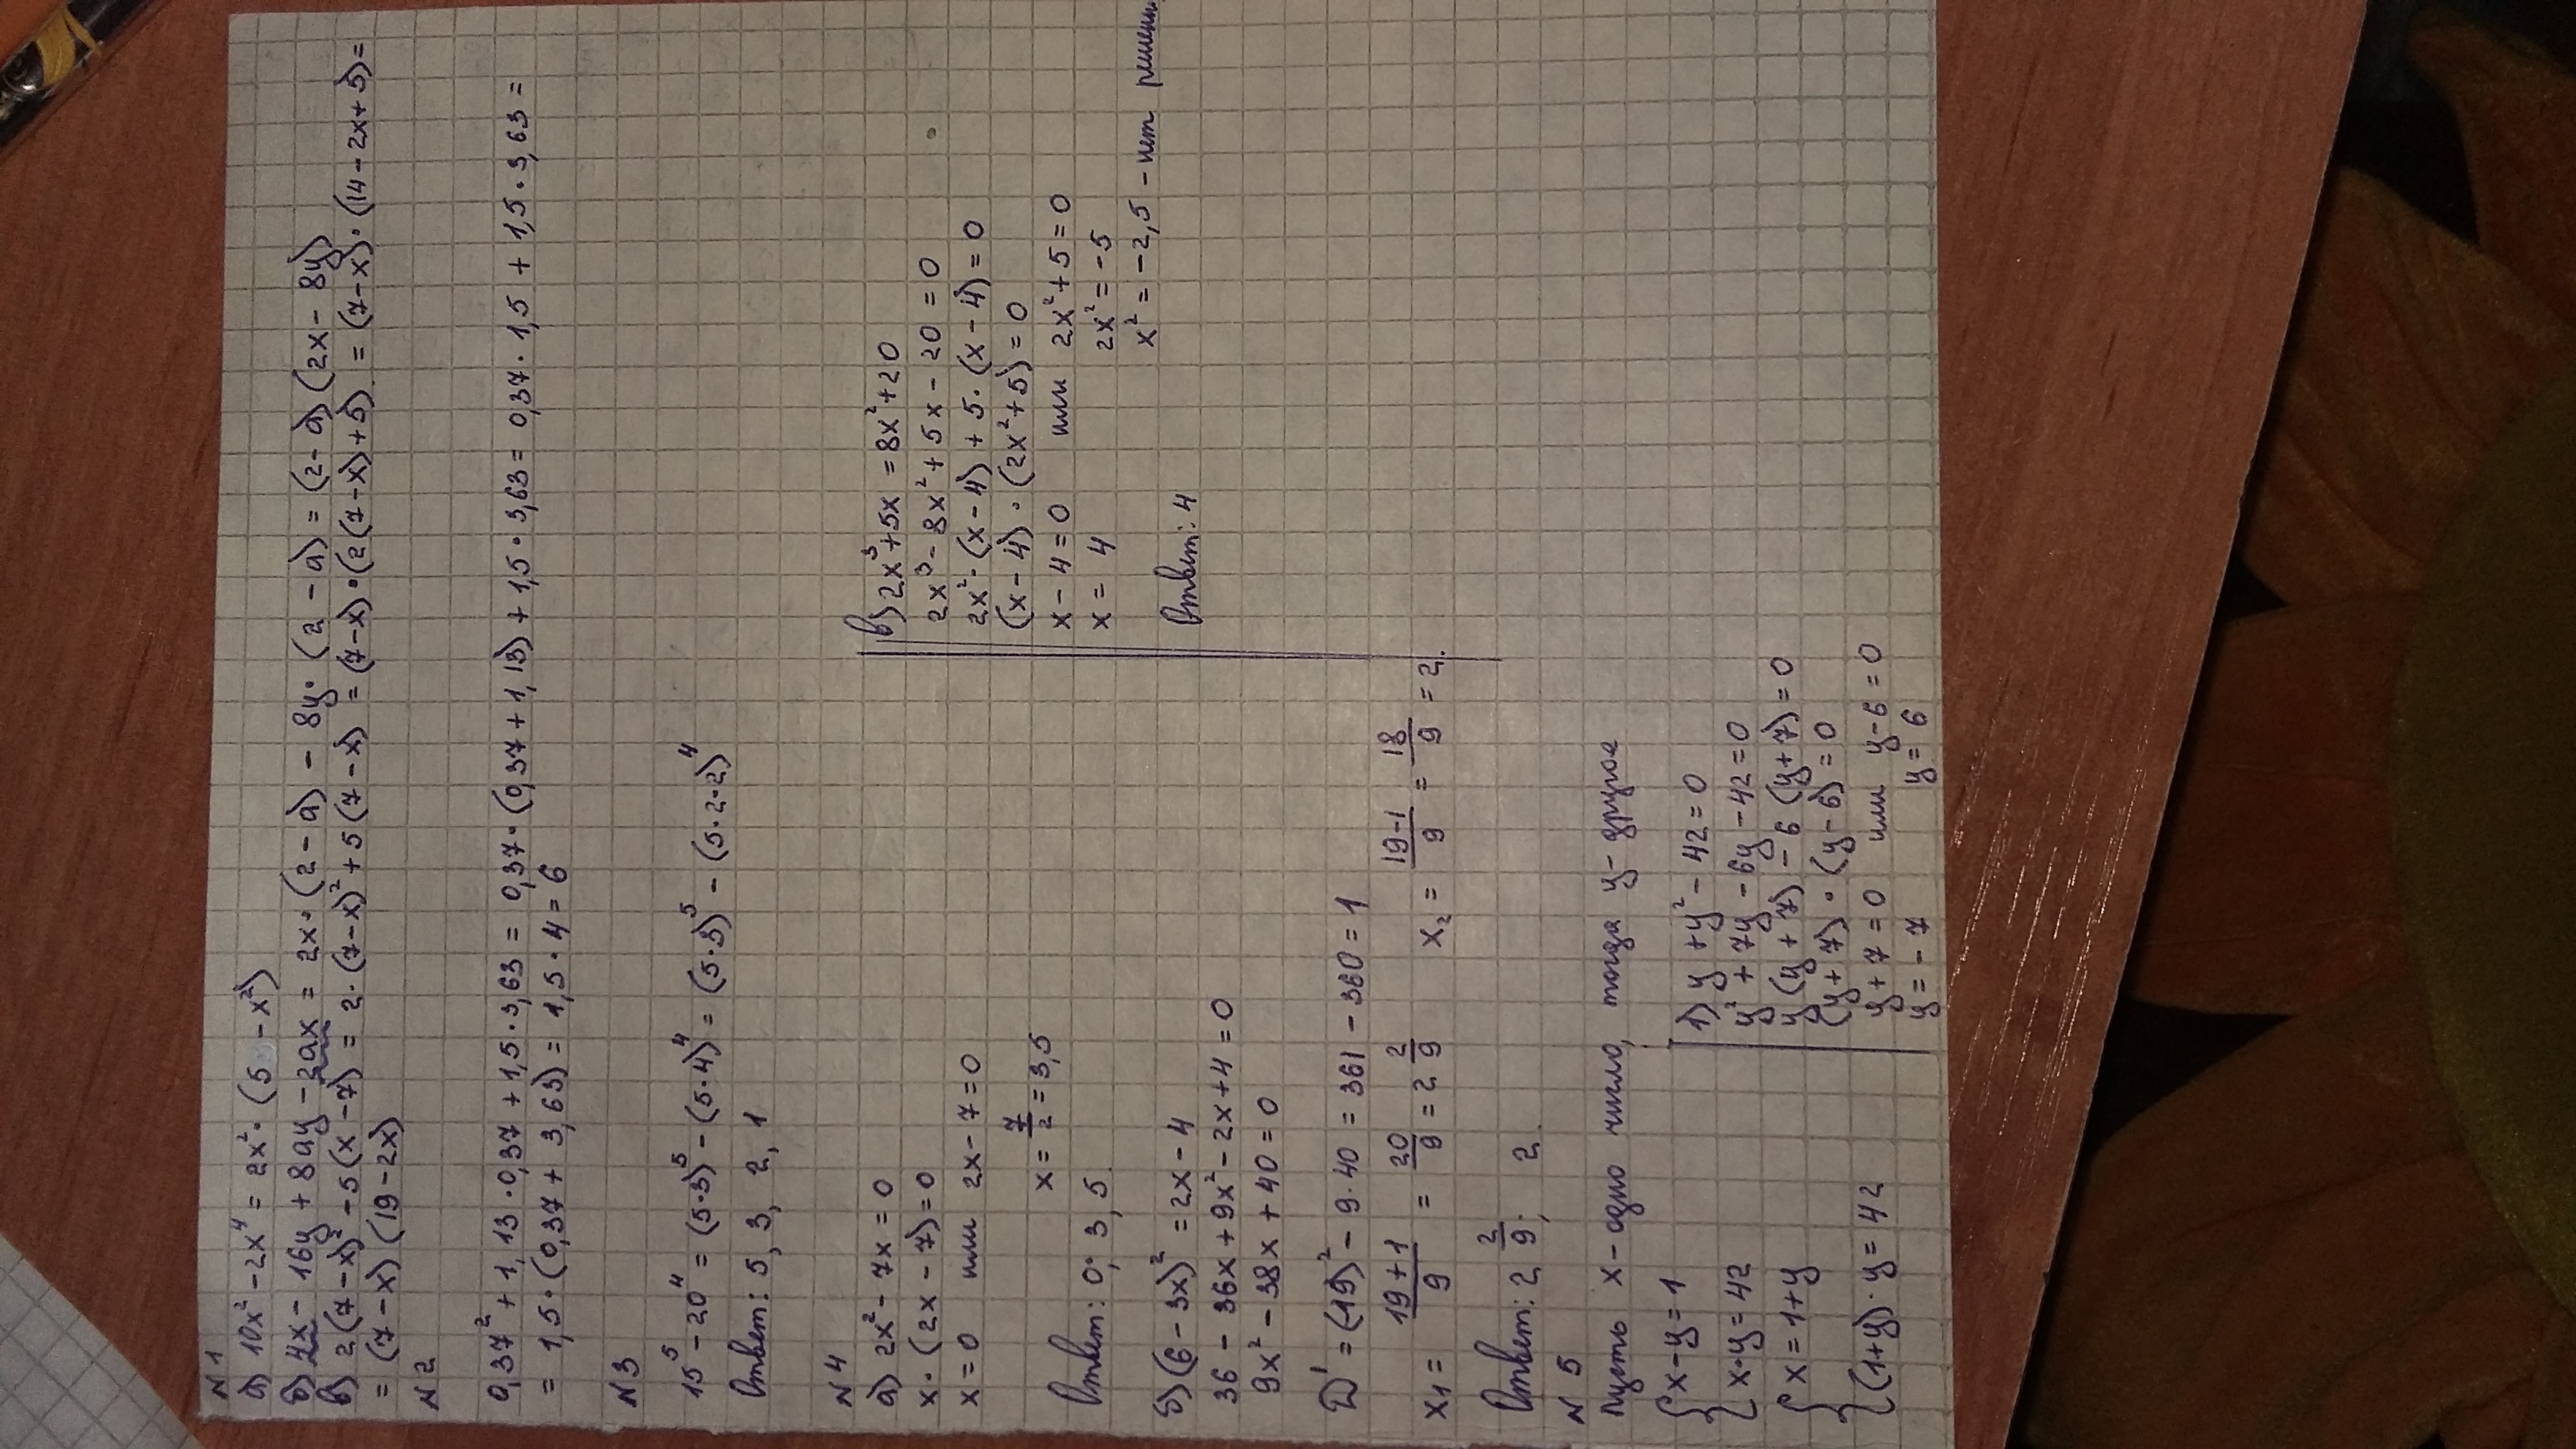 N 1
а) 10x² - 2x⁴ = 2x² · (5 - x²)
б) 4x - 16y + 8ay - 2ax = 2x · (2 - a) - 8y · (2 - a) = (2 - a) (2x - 8y)
в) 2(7-x)² - 5(x-7) = 2 · (7-x)² + 5(7-x) = (7-x) · (2(7-x)+5) = (7-x) · (14-2x+5) =
= (7-x) (19-2x)
N 2
0,37² + 1,13 · 0,37 + 1,5 · 3,63 = 0,37 · (0,37 + 1,13) + 1,5 · 3,63 = 0,37 · 1,5 + 1,5 · 3,63 =
= 1,5 · (0,37 + 3,63) = 1,5 · 4 = 6
N 3
15⁵ - 20⁴ = (5·3)⁵ - (5·4)⁴ = (5·3)⁵ - (5·2·2)⁴
Ответ: 5, 3, 2, 1
N 4
а) 2x² - 7x = 0
x · (2x - 7) = 0
x = 0 или 2x - 7 = 0
x = 7/2 = 3,5
Ответ: 0; 3,5
б) (6 - 3x)² = 2x - 4
36 - 36x + 9x² - 2x + 4 = 0
9x² - 38x + 40 = 0
D' = (19)² - 9·40 = 361 - 360 = 1
x₁ = (19+1)/9 = 20/9 = 2 2/9 x₂ = (19-1)/9 = 18/9 = 2.
Ответ: 2 2/9; 2
в) 2x³ + 5x = 8x² + 20
2x³ - 8x² + 5x - 20 = 0
2x² · (x - 4) + 5 · (x - 4) = 0
(x - 4) · (2x² + 5) = 0
x - 4 = 0 или 2x² + 5 = 0
x = 4 2x² = -5
x² = -2,5 - нет
Ответ: 4
N 5
Пусть x - одно число, тогда y - другое
{ x - y = 1
{ x · y = 42
{ x = 1 + y
{ (1+y) · y = 42
1) y + y² - 42 = 0
y² + 7y - 6y - 42 = 0
y (y + 7) - 6 (y + 7) = 0
(y + 7) · (y - 6) = 0
y + 7 = 0 или y - 6 = 0
y = - 7 y = 6